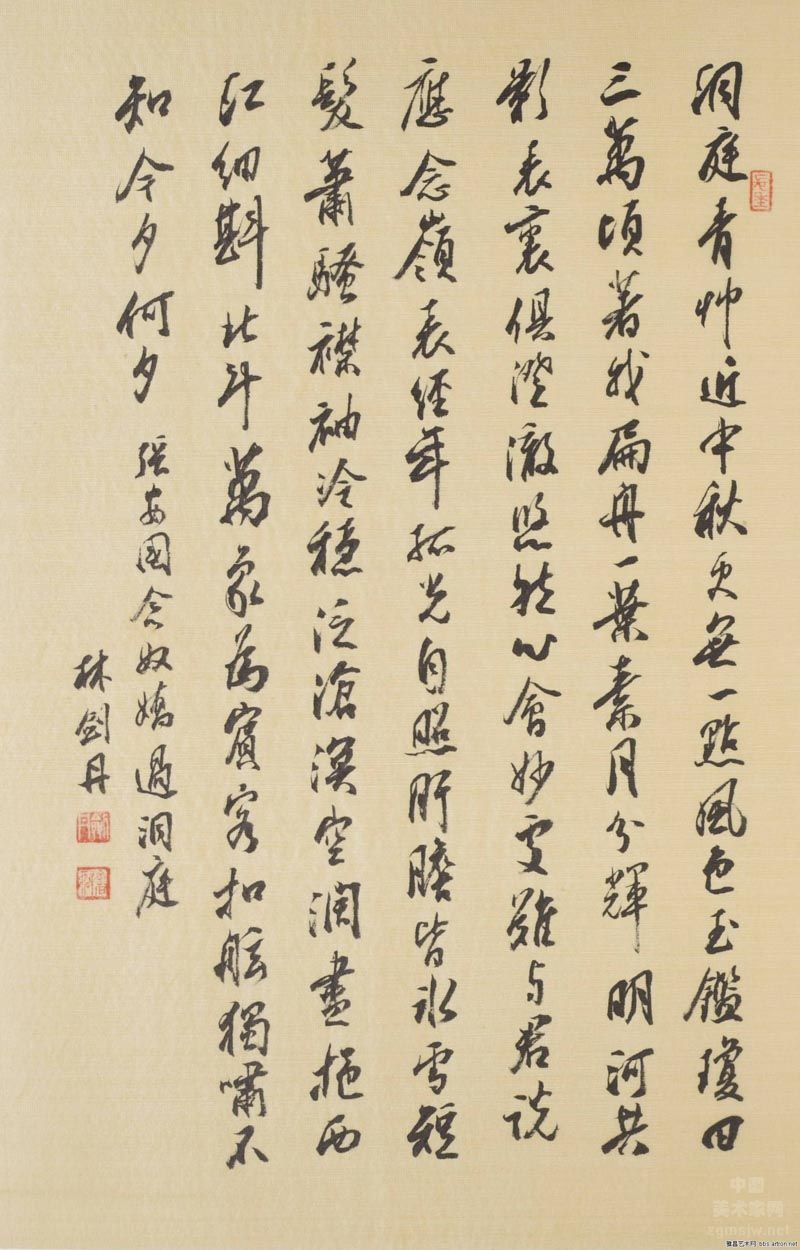 洞庭青艸近中秋更無一點風色玉鑑瓊田
三萬頃著我扁舟一葉素月分輝明河共
影表裏俱澄澈悠然心會妙處難与君説
應念嶺表經年孤光自照肝膽皆冰雪短
髮蕭騷襟袖冷穩泛滄溟空闊盡挹西
江細斟北斗萬象為賓客扣舷獨嘯不
知今夕何夕
張安國念奴嬌過洞庭
林劍丹
中国
美术家网
zgmsjw.net
雅昌艺术网 bbs.artron.net